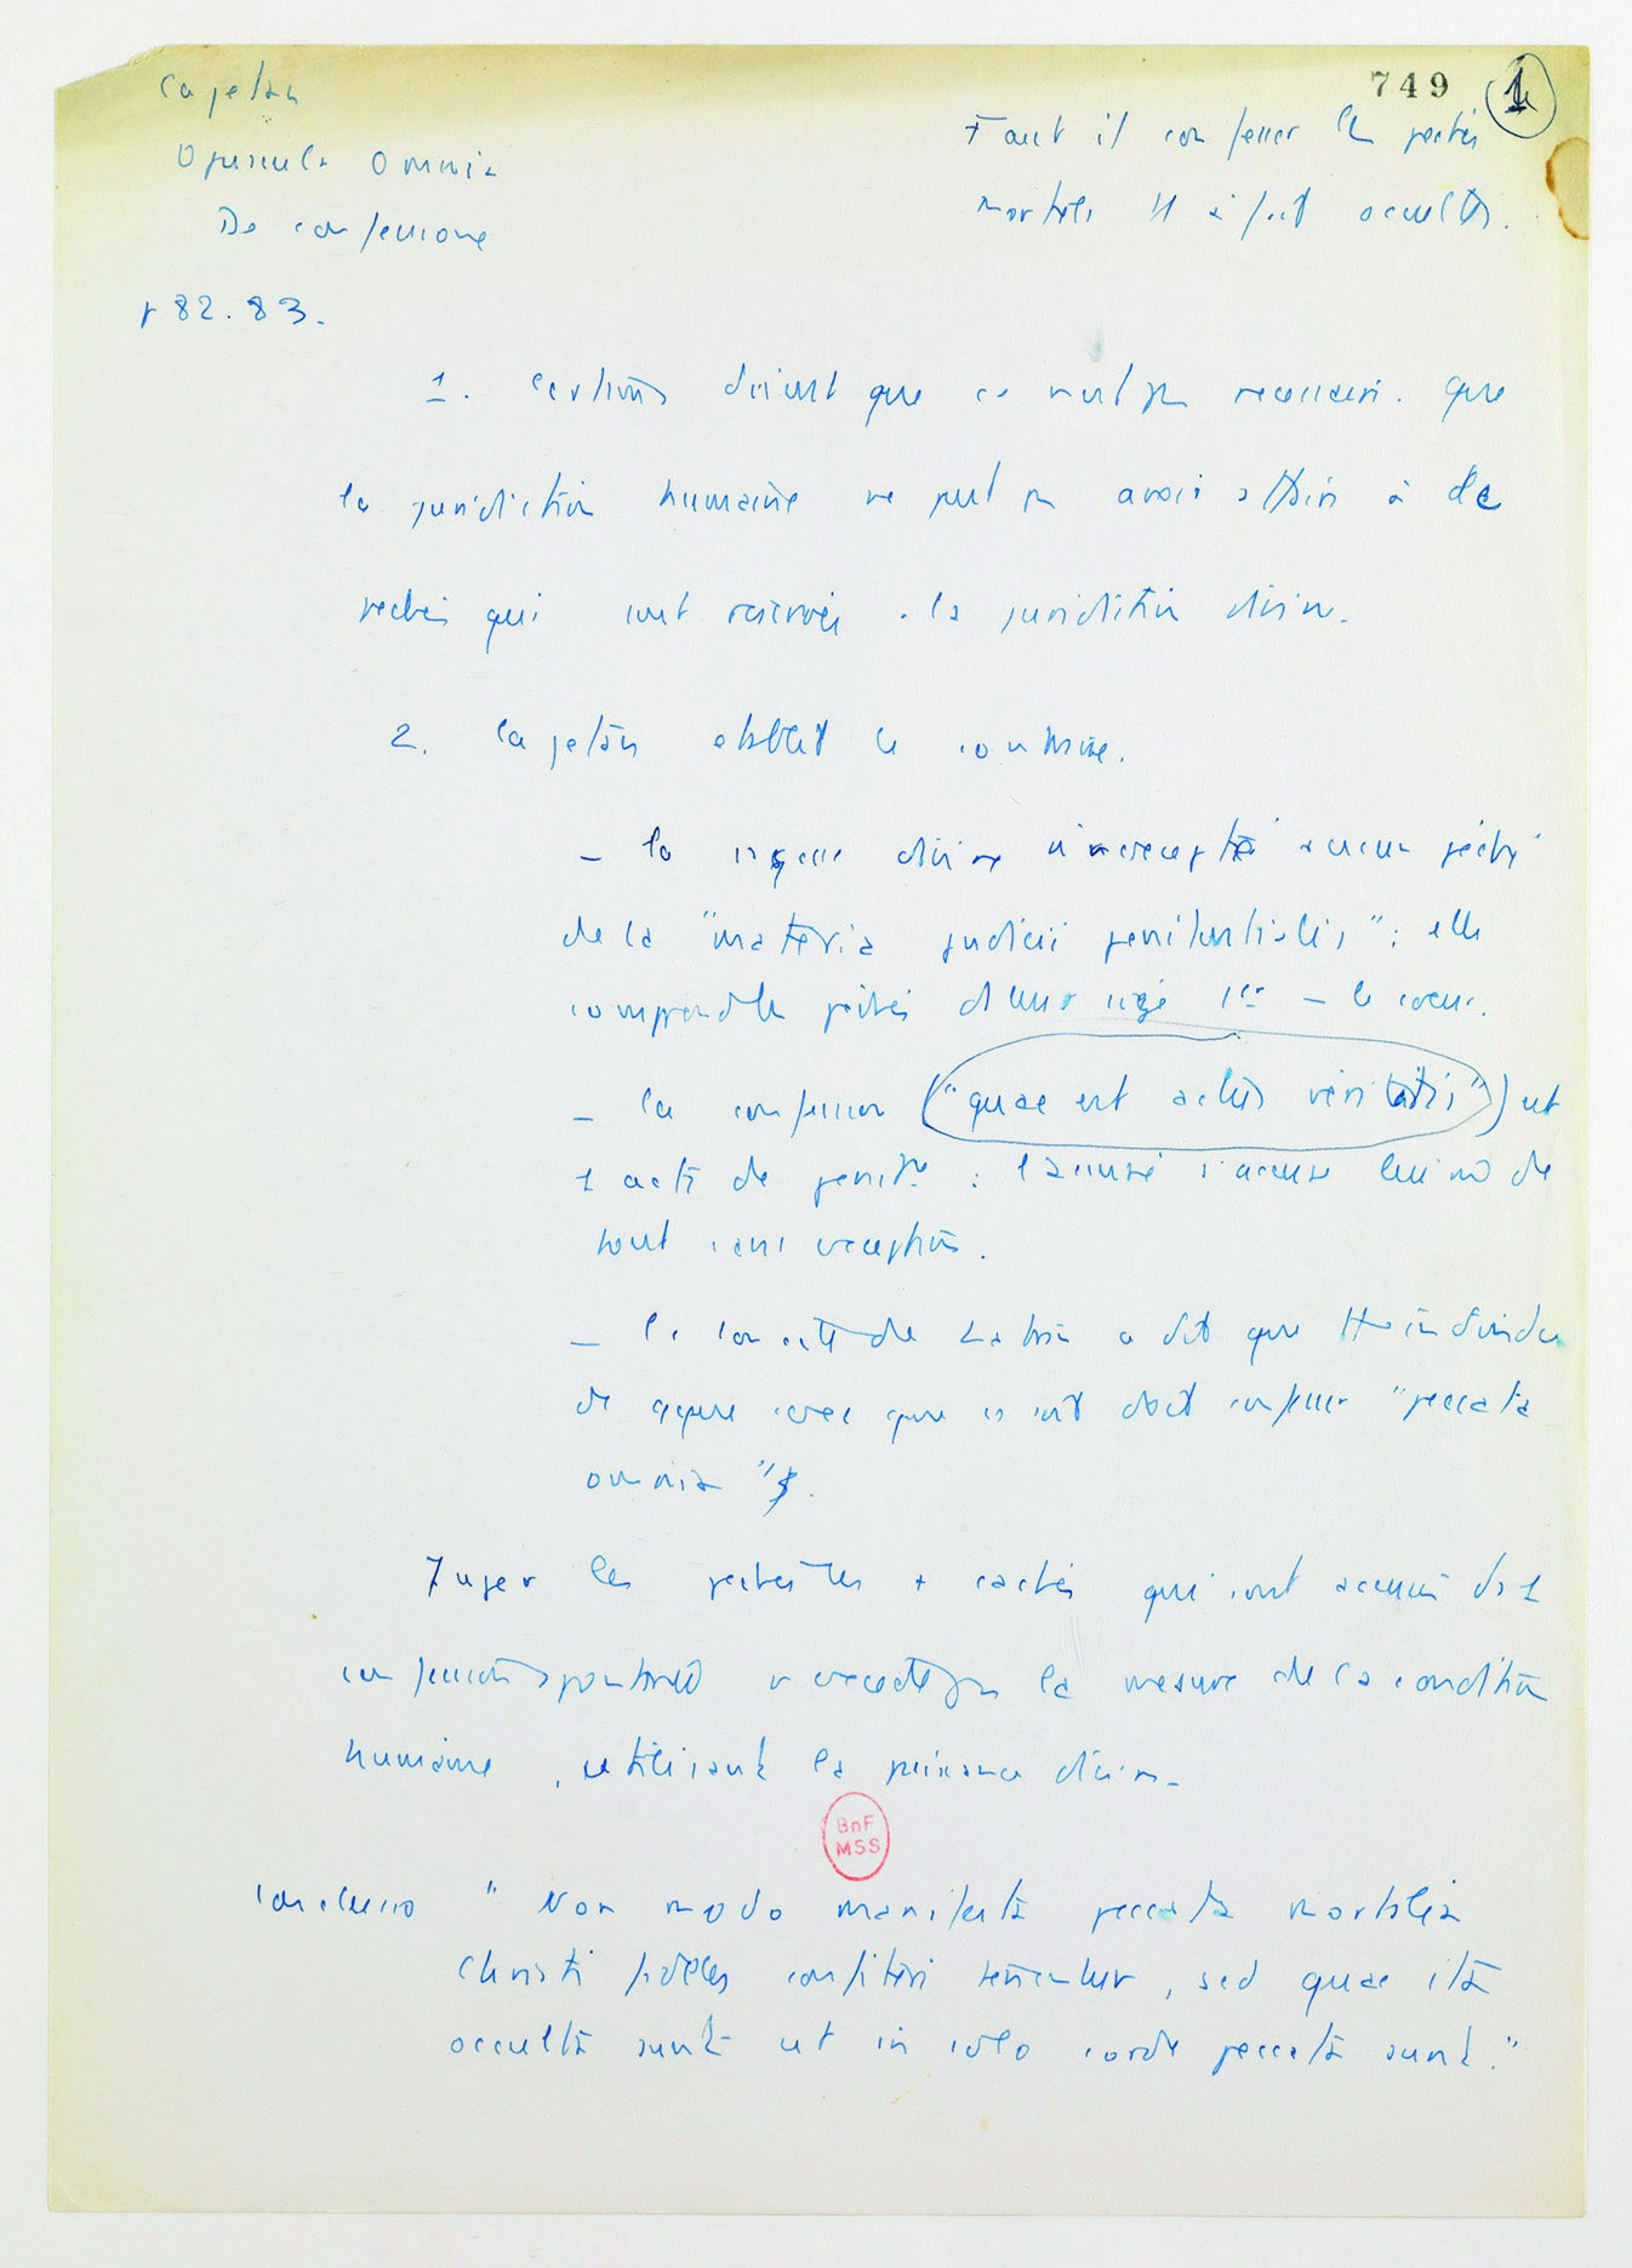 749 1
Cajetan
Opuscula Omnia
De confessione
Faut il confesser les péchés
mortels et occultes.
p 82.83.
1. Certains disent que ce n'est pas nécessaire. que
la juridiction humaine ne peut pas avoir à de
péchés qui sont réservés à la juridiction divine.
2. Cajetan établit le contraire.
- la divine n'a excepté aucun péché
de la "materia judicii penitentialis" : elle
comprend les péchés ds leur siège 1er - le coeur.
- la confession ("quae est actus veritatis") est
1 acte de penit : l'accusé s'accuse lui m de
tout sans exception.
- le de Latran a dit que tt individu
de sexe que ce soit doit confesser "peccata
omnia".
Juger les péchés les + cachés qui sont accusés ds 1
confession spontanée n'excède pas la mesure de la condition
humaine, utilisant la puissance divine
Conclusio "Non modo manifesta peccata mortalia
Christi fideles confiteri tenentur, sed quae ita
occulta sunt ut in solo corde peccata sunt."
BnF
MSS